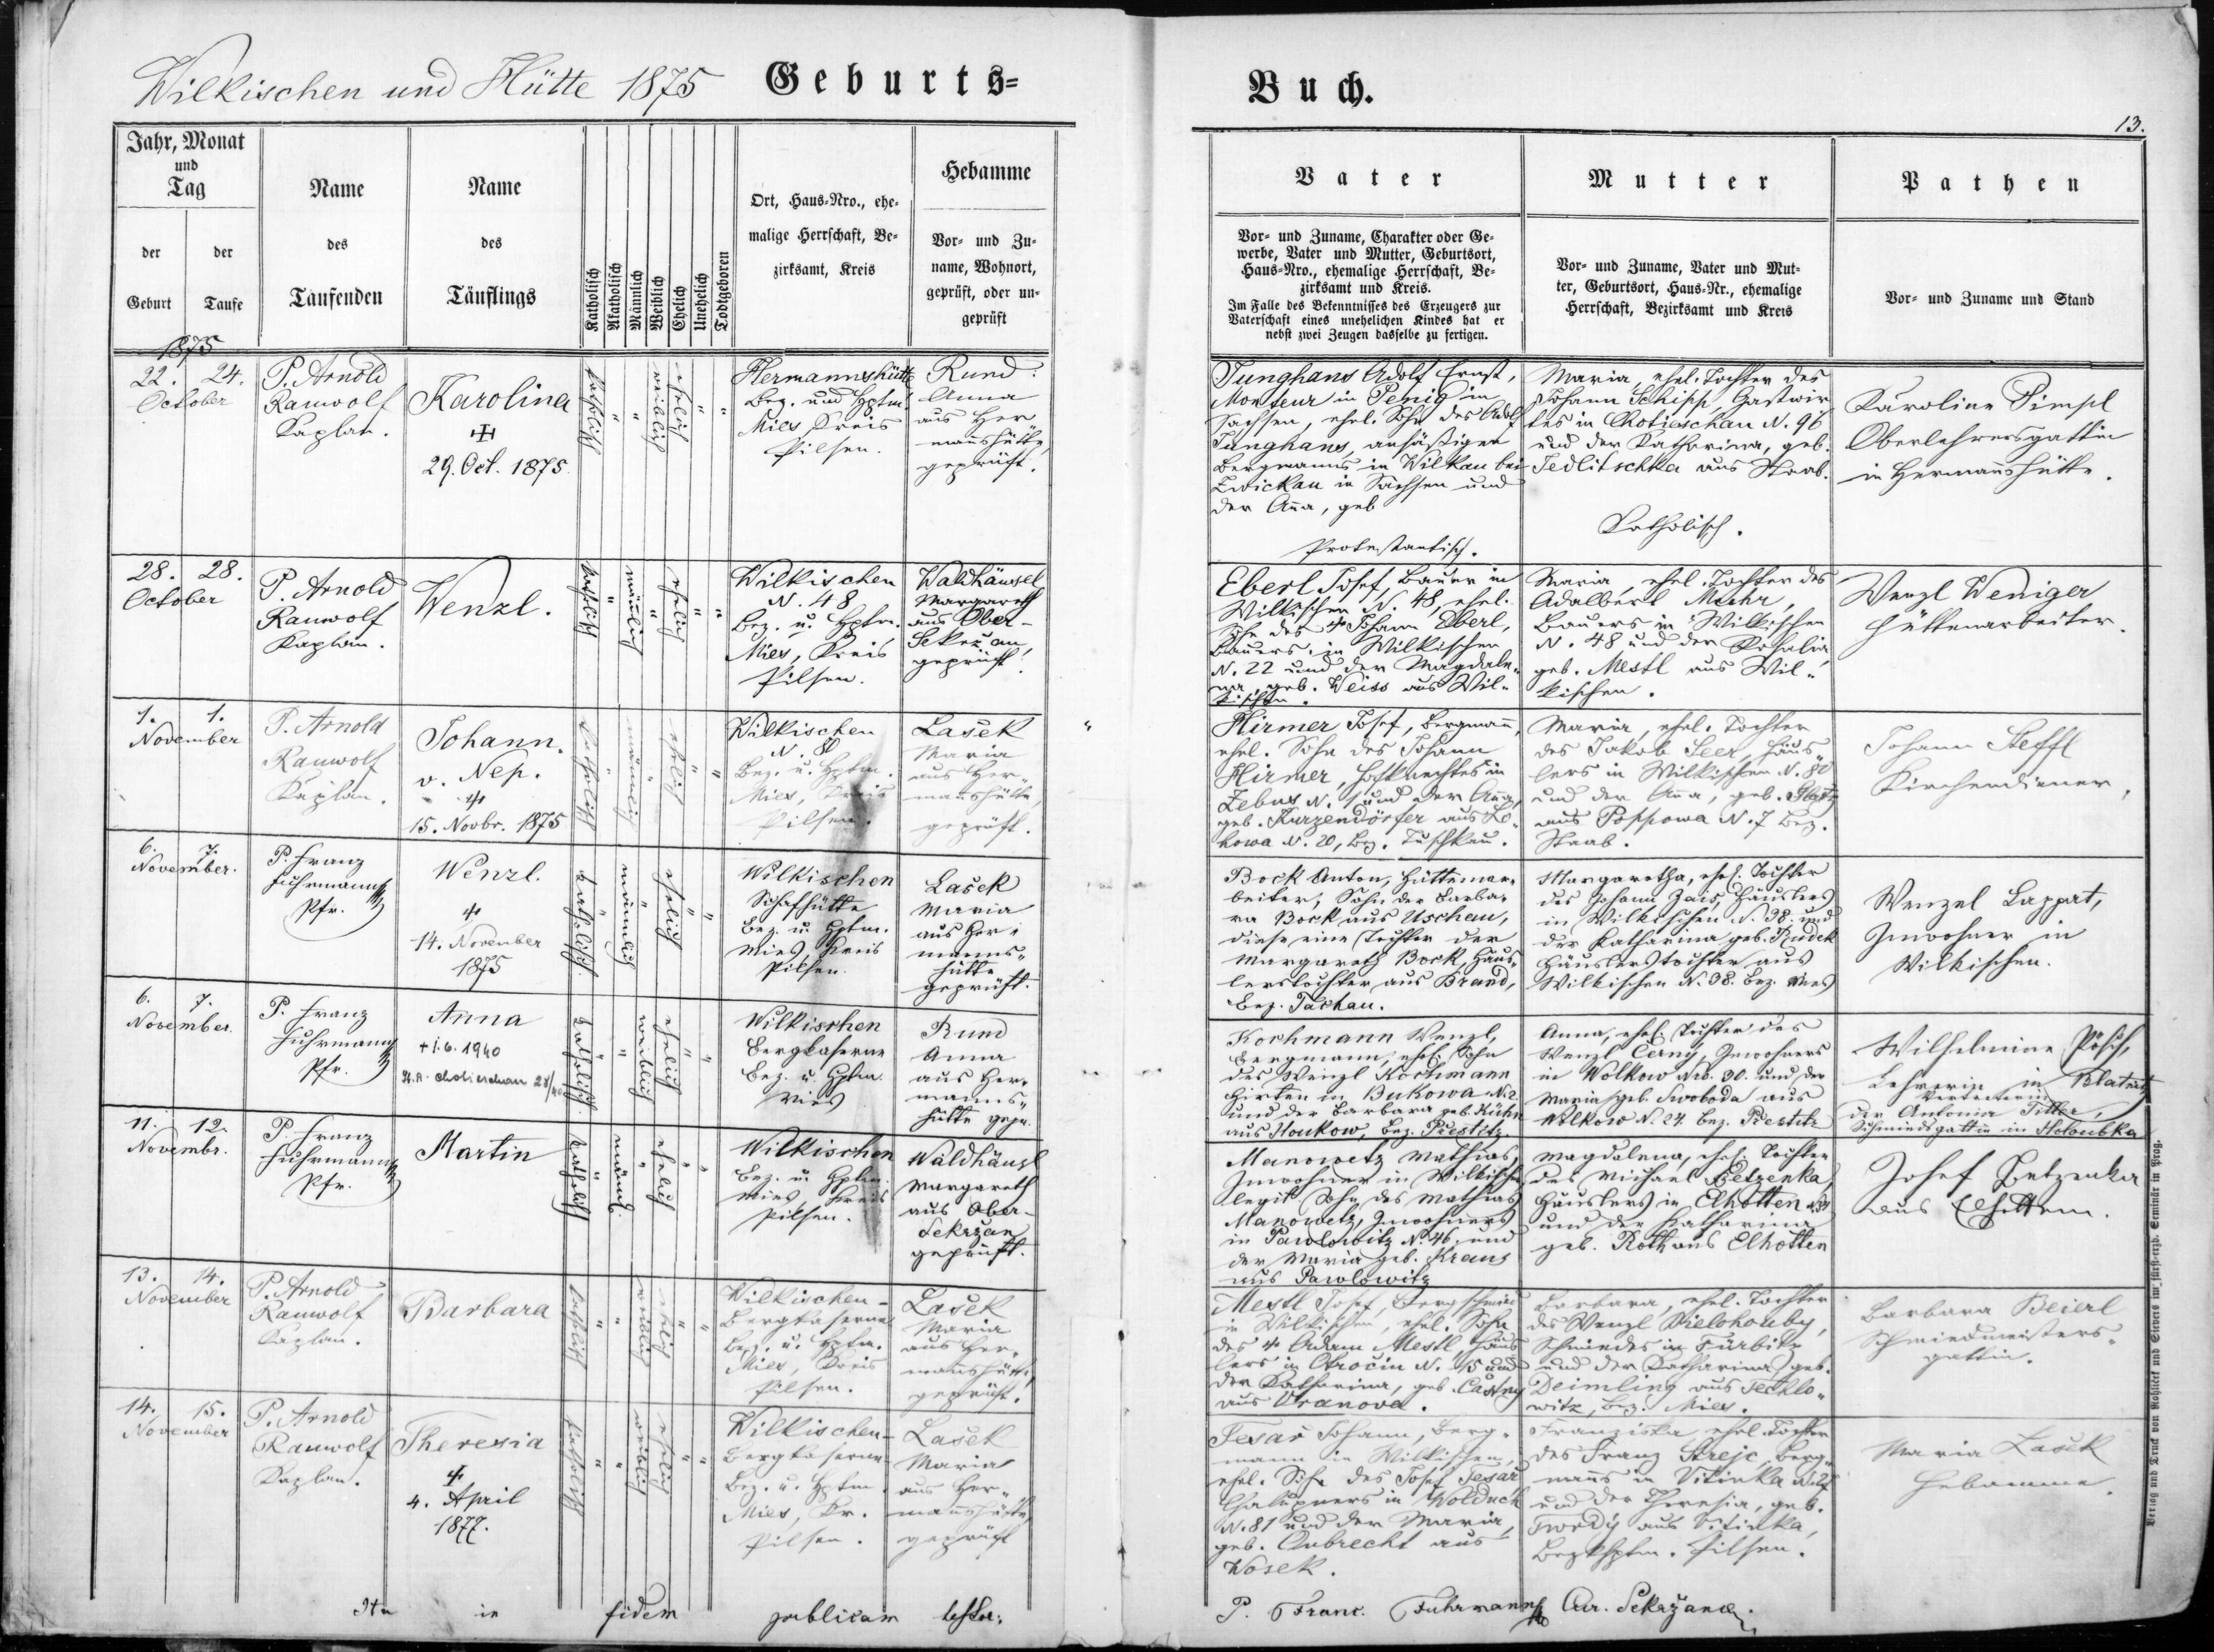 Wilkischen und Hütte 1875 Geburts=
Buch.
13.
Jahr, Monat
und
Tag
der
Geburt
der
Taufe
Name
des
Taufenden
Name
des
Täuflings
Katholisch
Akatholisch
Männlich
Weiblich
Ehelich
Unehelich
Todtgeboren
Ort, Haus=Nro., ehe=
malige Herrschaft, Be=
zirksamt, Kreis
Hebamme
Vor= und Zu=
name, Wohnort,
geprüft, oder un=
geprüft
Vater
Vor= und Zuname, Charakter oder Ge=
werbe, Vater und Mutter, Geburtsort,
Haus=Nro., ehemalige Herrschaft, Be=
zirksamt und Kreis.
Im Falle des Bekenntnisses des Erzeugers zur
Vaterschaft eines unehelichen Kindes hat er
nebst zwei Zeugen dasselbe zu fertigen.
Mutter
Vor= und Zuname, Vater und Mut=
ter, Geburtsort, Haus=Nr., ehemalige
Herrschaft, Bezirksamt und Kreis
Pathen
Vor= und Zuname und Stand
1875
22. 24.
October
P. Arnold
Rauwolf
Kaplan.
Karolina
29. Oct. 1875.
katholisch
"
"
weiblich
ehelich
"
"
Hermannshütte
Bez. und Hptm.
Mies, Kreis
Pilsen.
Rund
Anna
aus Her
mannshütte,
geprüft.
Junghans Adolf Ernst,
Monteur in Penig in
Sachsen, ehel. Sohn des Adolf
Junghans, ansäßigen
Bergmanns in Wilkau bei
Zwickau in Sachsen und
der Anna, geb
Protestantisch.
Maria, ehel. Tochter des
Johann Schipp, Gastwir
tes in Chotieschau N. 96
und der Katharina, geb.
Jedlitschka aus Staab.
Katholisch.
Karoline Pimpl
Oberlehrersgattin
in Hermannshütte.
28. 28.
October
P. Arnold
Rauwolf
Kaplan.
Wenzl.
katholisch
"
männlich
"
ehelich
"
"
Wilkischen
N. 48
Bez. u. Hptm.
Mies, Kreis
Pilsen.
Waldhäusel
Margareth
aus Ober-
Sekeran,
geprüft.
Eberl Josef, Bauer in
Wilkischen N. 48, ehel.
Sohn des Johann Eberl,
Bauers in Wilkischen
N. 22 und der Magdale-
na, geb. Weiss aus Wil-
kischen.
Maria, ehel. Tochter des
Adalbert Muhr,
Bauers in Wilkischen
N. 48 und der Rosalia
geb. Mestl aus Wil-
kischen.
Wenzl Weniger
Hüttenarbeiter.
1. 1.
November
P. Arnold
Rauwolf
Kaplan.
Johann
v. Nep.
15. Novbr. 1875
katholisch
"
männlich
"
ehelich
"
"
Wilkischen
N. 80
Bez. u. Hptm.
Mies, Kreis
Pilsen.
Lašek
Maria
aus Her-
mannshütte,
geprüft.
Hirmer Josef, Bergmann,
ehel. Sohn des Johann
Hirmer, Hofknechtes in
Zebus N. 1 und der Anna,
geb. Kurzendörfer aus
kowa N. 20, Bez. Tuschkau.
Maria, ehel. Tochter
des Jakob Seer, Häus-
lers in Wilkischen N. 80
und der Anna, geb.
aus Poppowa N. 7 Bez.
Staab.
Johann Steffl
Kirchendiener.
6. 7.
November.
P. Franz
Fuhrmann
Pfr.
Wenzl.
14. November
1875
katholisch
"
männlich
"
ehelich
"
"
Wilkischen
Schafhütte
Bez. u. Hptm.
Mies, Kreis
Pilsen.
Lašek
Maria
aus Her-
manns-
hütte
geprüft.
Bock Anton, Hüttenar-
beiter, Sohn der Barba-
ra Bock aus Uschau,
diese eine Tochter der
Margareth Bock, Häus-
lerstochter aus Brand,
Bez. Tachau.
Margaretha, ehel. Tochter
des Johann Zais, Häuslers
in Wilkischen N. 38. und
der Katharina geb. Rudek
Häuslerstochter aus
Wilkischen N. 38. Bez. Mies
Wenzel Lappat,
Inwohner in
Wilkischen.
6. 7.
November.
P. Franz
Fuhrmann
Pfr.
Anna
+ 1.6. 1940
St. A. Chotieschau
katholisch
"
"
weiblich
ehelich
"
"
Wilkischen
Bergkaserne
Bez. u. Hptm.
Mies
Rund
Anna
aus Her-
manns-
hütte gepr.
Kochmann Wenzl,
Bergmann, ehel. Sohn
des Wenzl Kochmann
Hirten in Bukowa N. 2
und der Barbara geb. Kuhn
aus Houkow, Bez. Prestitz.
Anna, ehel. Tochter des
Wenzl Černý, Inwohners
in Wolkow Nro. 30. und der
Maria geb. Swoboda aus
Wolkow N. 24. Bez. Prestitz
Wilhelmine Pösch,
Lehrerin in Blatnitz
Vertreterin
der Antonia Sitter,
Schmiedsgattin in Holoubka
11. 12.
Novembr.
P. Franz
Fuhrmann
Pfr.
Martin
katholisch
"
männl.
"
ehelich
"
"
Wilkischen
Bez. u. Hptm.
Mies, Kreis
Pilsen.
Waldhäusl
Margareth
aus Ober-
Sekržan
geprüft.
Manowetz Mathias,
Inwohner in Wilkischen
legit. Sohn des Mathias
Manowetz, Inwohners
in Pawlowitz N. 46. und
der Maria geb. Kraus
aus Pawlowitz
Magdalena, ehel. Tochter
des Michael Betzenka,
Häuslers in Elhotten
und der Katharina
geb. Roth aus Elhotten
Josef Betzenka
aus Elhotten.
13. 14.
November
P. Arnold
Rauwolf
Kaplan.
Barbara
katholisch
"
"
weiblich
ehelich
"
Wilkischen-
Bergkaserne
Bez. u. Hptm.
Mies, Kreis
Pilsen.
Lašek
Maria
aus Her-
mannshütte,
geprüft.
Mestl Josef, Bergschmied
in Wilkischen, ehel. Sohn
des Adam Mestl, Häus
lers in Otročin N. 15 und
der Katharina, geb. Častny
aus Vranova.
Barbara, ehel. Tochter
des Wenzl Bielohouby,
Schmiedes in Turbitz
und der Katharina, geb.
Deimling aus Techlo-
witz, Bez. Mies.
Barbara Beierl
Schmiedmeisters-
gattin.
14. 15.
November
P. Arnold
Rauwolf
Kaplan.
Theresia
4. April
1877.
katholisch
"
"
weiblich
ehelich
"
"
Wilkischen-
Bergkaserne
Bez. u. Hptm.
Mies, Kr.
Pilsen.
Lašek
Maria
aus Her-
mannshütte,
geprüft
Tesař Johann, Berg-
mann in Wilkischen,
ehel. Sohn des Josef Tesař
Chaluppners in Wolduch
N. 81 und der Maria,
geb. Oubrecht aus
Wosek.
Franziska ehel. Tochter
des Franz Strejc, Berg-
manns in Vitinka N. 27
und der Theresia, geb.
Twrdý aus Vitinka,
Bezhptm. Pilsen.
Maria Lašek
Hebamme.
Ita in fidem publicam testor:
P. Franc. Fuhrmann Cur. Sekržanen.
Verlag und Druck von Rohliček und Sievers im fürst=erzb. Seminär in Prag.